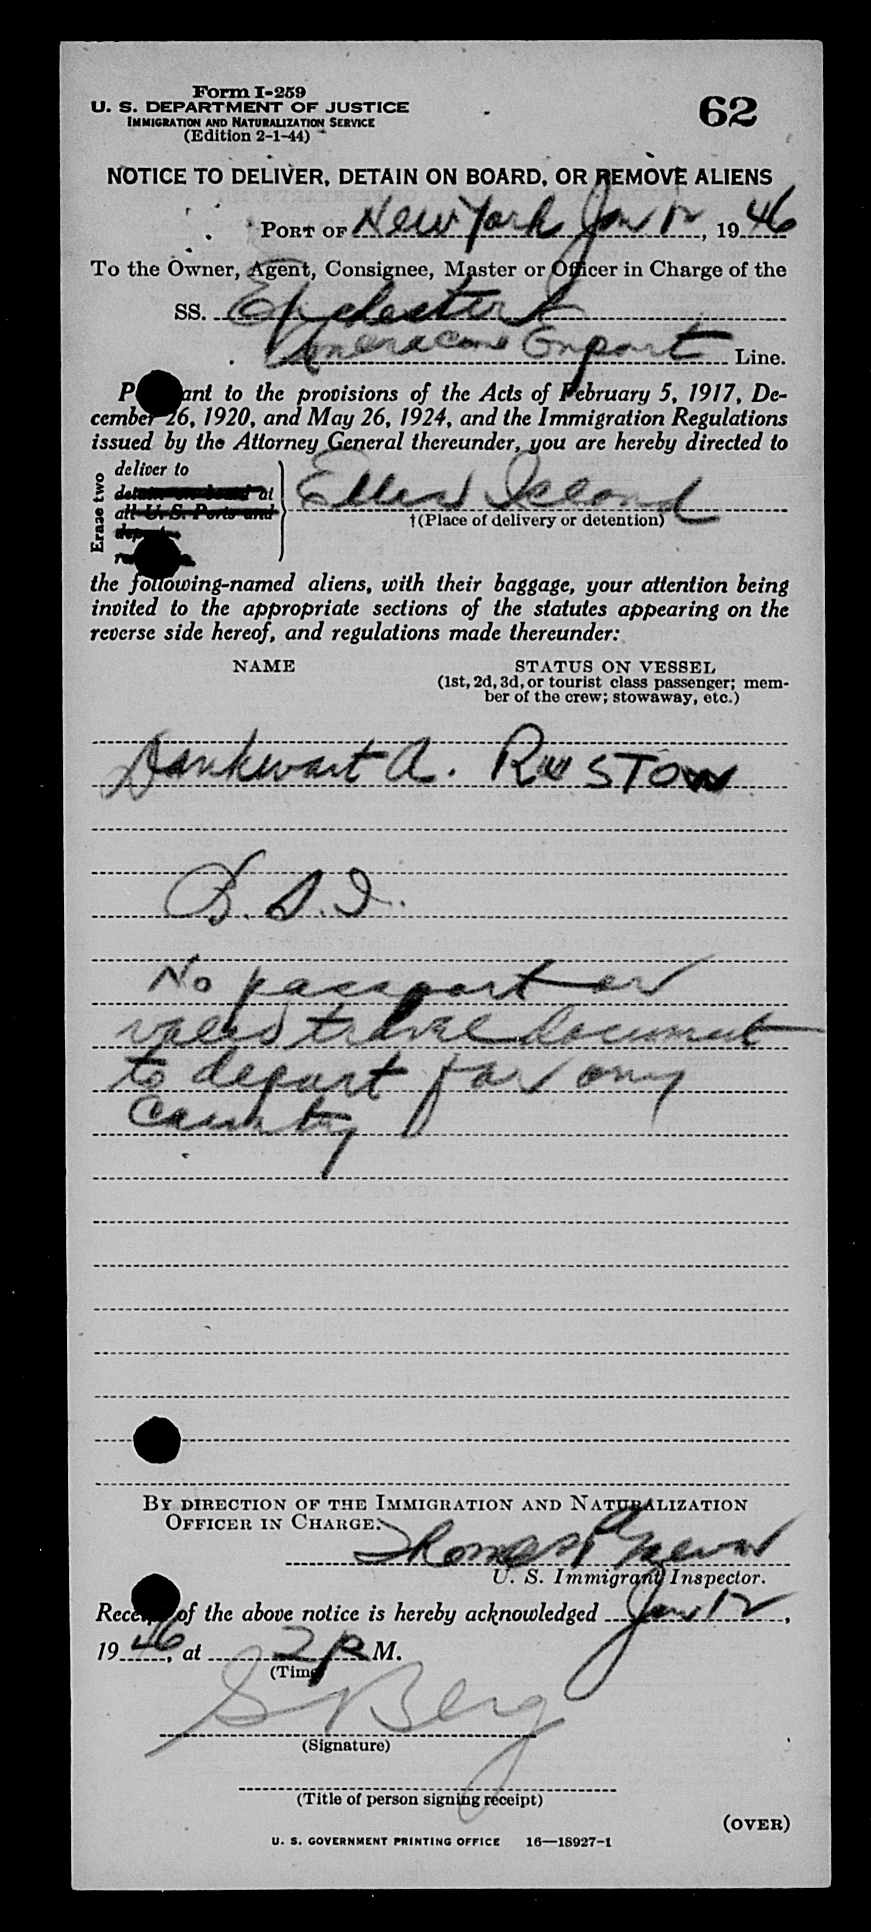 Form I-259
U. S. DEPARTMENT OF JUSTICE
IMMIGRATION AND NATURALIZATION SERVICE
(Edition 2-1-44)
62
NOTICE TO DELIVER, DETAIN ON BOARD, OR REMOVE ALIENS
PORT OF New York Jan 12, 1946
To the Owner, Agent, Consignee, Master or Officer in Charge of the
SS.
American Export Line.
P ant to the provisions of the Acts of February 5, 1917, De-
cember 26, 1920, and May 26, 1924, and the Immigration Regulations
issued by the Attorney General thereunder, you are hereby directed to
Erase two
deliver to
detain on board at
all U. S. Ports and
Ellis Island
†(Place of delivery or detention)
the following-named aliens, with their baggage, your attention being
invited to the appropriate sections of the statutes appearing on the
reverse side hereof, and regulations made thereunder:
NAME STATUS ON VESSEL
(1st, 2d, 3d, or tourist class passenger; mem-
ber of the crew; stowaway, etc.)
Dankwart A. RUSTOW
B.S.I.
No passport or
valid travel document
to depart for any
Country
BY DIRECTION OF THE IMMIGRATION AND NATURALIZATION
OFFICER IN CHARGE:
Thomas P
U. S. Immigrant Inspector.
Rece of the above notice is hereby acknowledged Jan 12,
1946, at 2 P M.
(Time)
S Berg
(Signature)
(Title of person signing receipt)
(OVER)
U. S. GOVERNMENT PRINTING OFFICE 16—18927-1